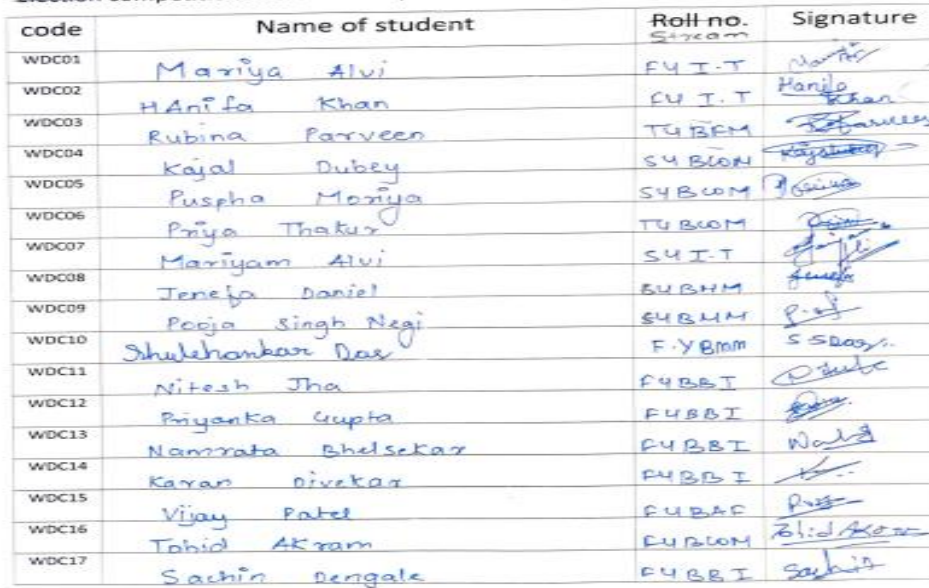 code Name of student Roll no. Signature
Stream
WDC01 Mariya Alvi FY I.T
WDC02 HAnifa Khan FY I.T Hanifa Khan
WDC03 Rubina Parveen TYBFM
WDC04 Kajal Dubey SYBCOM
WDC05 Puspha Moriya SYBCOM
WDC06 Priya Thakur TYBCOM
WDC07 Mariyam Alvi SY I.T
WDC08 Jenefa Daniel SYBMM
WDC09 Pooja Singh Negi SYBMM
WDC10 Das F.Y Bmm S S Das
WDC11 Nitesh Jha FYBBI
WDC12 Priyanka Gupta FYBBI
WDC13 Namrata Bhelsekar FYBBI
WDC14 Karan Divekar FYBBI
WDC15 Vijay Patel FYBAF
WDC16 Tohid Akram FYBCOM
WDC17 Sachin Dengale FYBBI Sachin